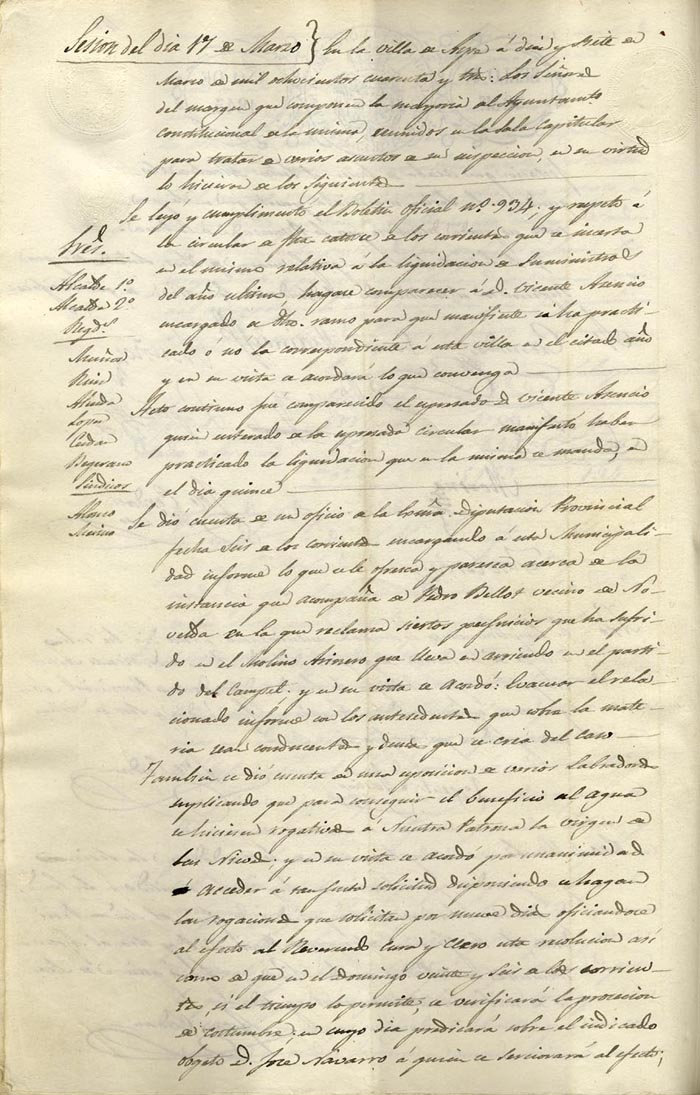 Sesion del dia 17 de Marzo} En la villa de Aspe á diez y siete de
Marzo de mil ochocientos cuarenta y tres: Los Señores
del margen que componen la mayoria del Ayuntamto
constitucional de la misma, reunidos en la Sala Capitular
para tratar de varios asuntos de su inspeccion, en su virtud
lo hicieron de los siguientes
Se leyó y cumplimentó el Boletin oficial nº 934. y respeto á
la circular de fha catorce de los corrientes que se incerta
en el mismo relativa á la liquidacion de suministros
del año ultimo, hagase comparecer á D. Vicente Asencio
encargado de dho. ramo para que manifieste si ha practi-
cado ó no la correspondiente á esta villa en el citado año
y en su vista se acordará lo que convenga
Acto continuo fué comparecido el espresado D. Vicente Asencio
quien enterado de la espresada circular manifestó haber
practicado la liquidacion que en la misma se manda, en
el dia quince
Sres.
Alcalde 1º
Alcalde 2º
Regds
Muñoz
Ruiz
Almida
Lopez
Cerdan
Bejerano
Sindicos
Alonso
Merino
Se dió cuenta de un oficio de la Exma Diputacion Provincial
fecha seis de los corrientes encargando á esta Municipali-
dad informe lo que se le ofresca y paresca acerca de la
instancia que acompaña de Pedro Bellot vecino de No-
velda en la que reclama siertos perjuicios que ha sufri-
do en el Molino Arinero que lleva en arriendo en el parti-
do del Campet; y en su vista se Acordó: Evacuar el rela-
cionado informe con los antecedentes que sobre la mate-
ria sean conducentes y demas que se crea del caso
Tambien se dió cuenta de una esposicion de varios Labradores
suplicando que para conseguir el beneficio del Agua
se hiciesen rogativas á Nuestra Patrona la virgen de
las Nieves; y en su vista se acordó por unanimidad
Acceder á tan justa solicitud disponiendo se hagan
las rogaciones que solicitan por nueve dias oficiandose
al efecto al Reverendo Cura y Clero esta resolucion asi
como de que en el Domingo veinte y seis de los corrien-
tes, si el tiempo lo permite, se verificará la procesion
de costumbre, en cuyo dia predicará sobre el indicado
obgeto D. José Navarro á quien se serciorará al efecto;